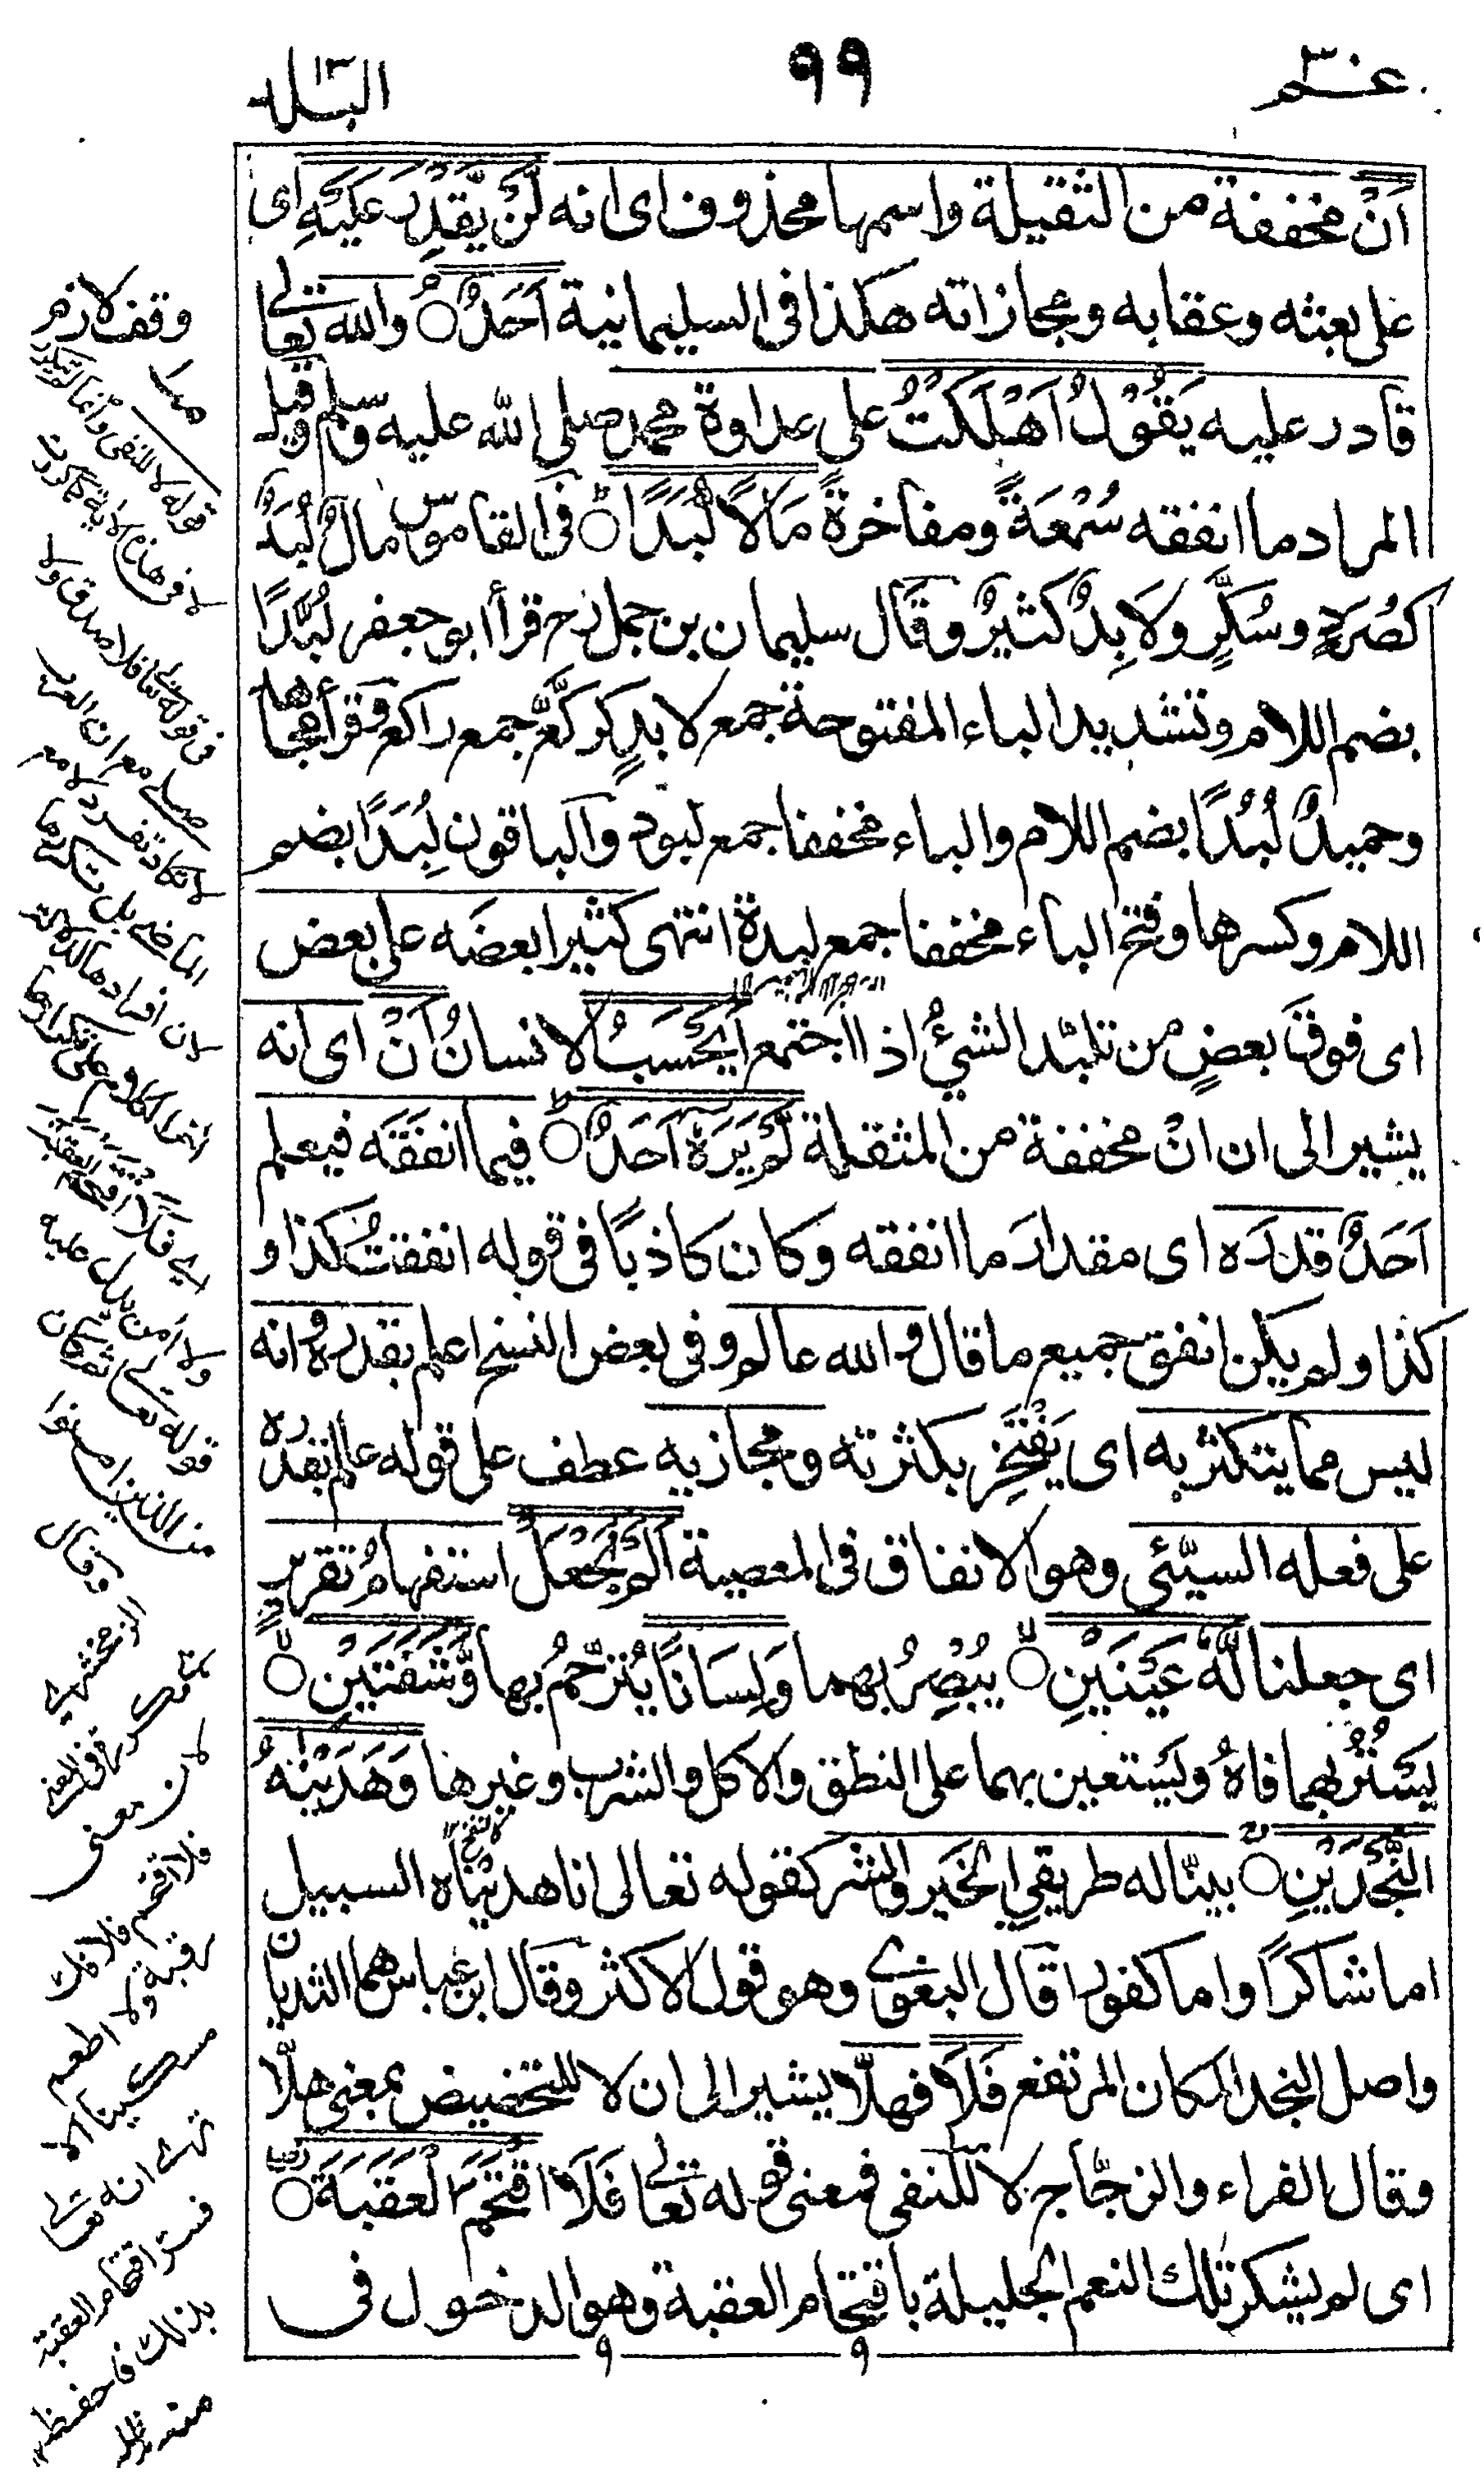 عم ٣٠
٩٩
البلد
اَنْ مخففة من الثقيلة واسمها محذوف اى انه لَّنْ يَّقْدِرَ عَلَيْهِ اى
على بعثه وعقابه ومجازاته هكذا فى السليمانية اَحَدٌ والله تعالى
قادر عليه يَقُوْلُ اَهْلَكْتُ على عداوة محمد صلى الله عليه وسلم وقيل
المراد ما انفقه سُمْعَةً ومفاخرةً مَالًا لُّبَدًا فى القاموس مالٌ لُبَدٌ
كصُرَدٍ وسُكَّرٍ ولَابِدٌ كثيرٌ وقال سليمان بن جمل رح قرأ ابو جعفر لُبَّدًا
بضم اللام وتشديد الباء المفتوحة جمع لابدٍ كركَّعٍ جمع راكع وقرأ مجاهد
وحميدٌ لُبُدًا بضم اللام والباء مخففا جمع لبود والباقون لِبَدًا بضم
اللام وكسرها وفتح الباء مخففا جمع لبدة انتهى كثيرا بعضَه على بعض
اى فوقَ بعضٍ من تلبّد الشيءُ اذا اجتمع اَيَحْسَبُ الانسانُ اَنْ اى انه
يشير الى ان انْ مخففة من المثقلة لَّمْ يَرَهٗ اَحَدٌ فيما انفقَه فيعلم
اَحَدٌ قدرَه اى مقدارَ ما انفقه وكان كاذبًا فى قوله انفقتُ كذا و
كذا ولم يكن انفق جميع ما قال والله عالم وفى بعض النسخ اعلم بقدره وانه
ليس مما يتكثر به اى يَفْتَخِر بكثرته ومجازيه عطف على قوله عالم بقدره
على فعله السيّئى وهو الانفاق فى المعصية اَلَمْ نَجْعَلْ استفهامُ تقريرٍ
اى جعلنا لَّهٗ عَيْنَيْنِ يُبْصِرُ بهما وَلِسَانًا يُتَرْجِمُ بها وَّشَفَتَيْنِ
يَسْتُرُ بهما فاهُ ويَستعين بهما على النطق والاكل والشرب وغيرها وَهَدَيْنٰهُ
النَّجْدَيْنِ بينّا له طريقىِ الخير والشر كقوله تعالى انا هديناه السبيل
اما شاكرًا واما كفورا قال البغوى وهو قول الاكثر وقال ابن عباس هما الثديان
واصل النجد المكان المرتفع فَلَا فهلّا يشير الى ان لا للتحضيض بمعنى هلّا
وقال الفراء والزجّاج لا للنفى فمعنى قوله تعالى فَلَا اقْتَحَمَ الْعَقَبَةَ
اى لم يشكر تلك النعم الجليلة باقتحام العقبة وهو الدخول فى
وقف لازم
قوله لا للنفى وانما لم يتكرر
لا فى هذه الاية كما كررت
فى قوله تعالى فلا صدق ولا
صلى مع ان العرب
لا تكاد تفرد لا مع
الماضى بل تكررها
لان افرادها
اى فلا اقتحم العقبة
ولا امن يدل عليه
قوله تعالى ثم كان
من الذين امنوا
وقال
الزمخشرى
متكررة فى المعنى
لان معنى
فلا اقتحم فلا فك
رقبة ولا اطعم
مسكينا الا
ترى انه تعالى
فسر اقتحام العقبة
بذلك فاحفظ